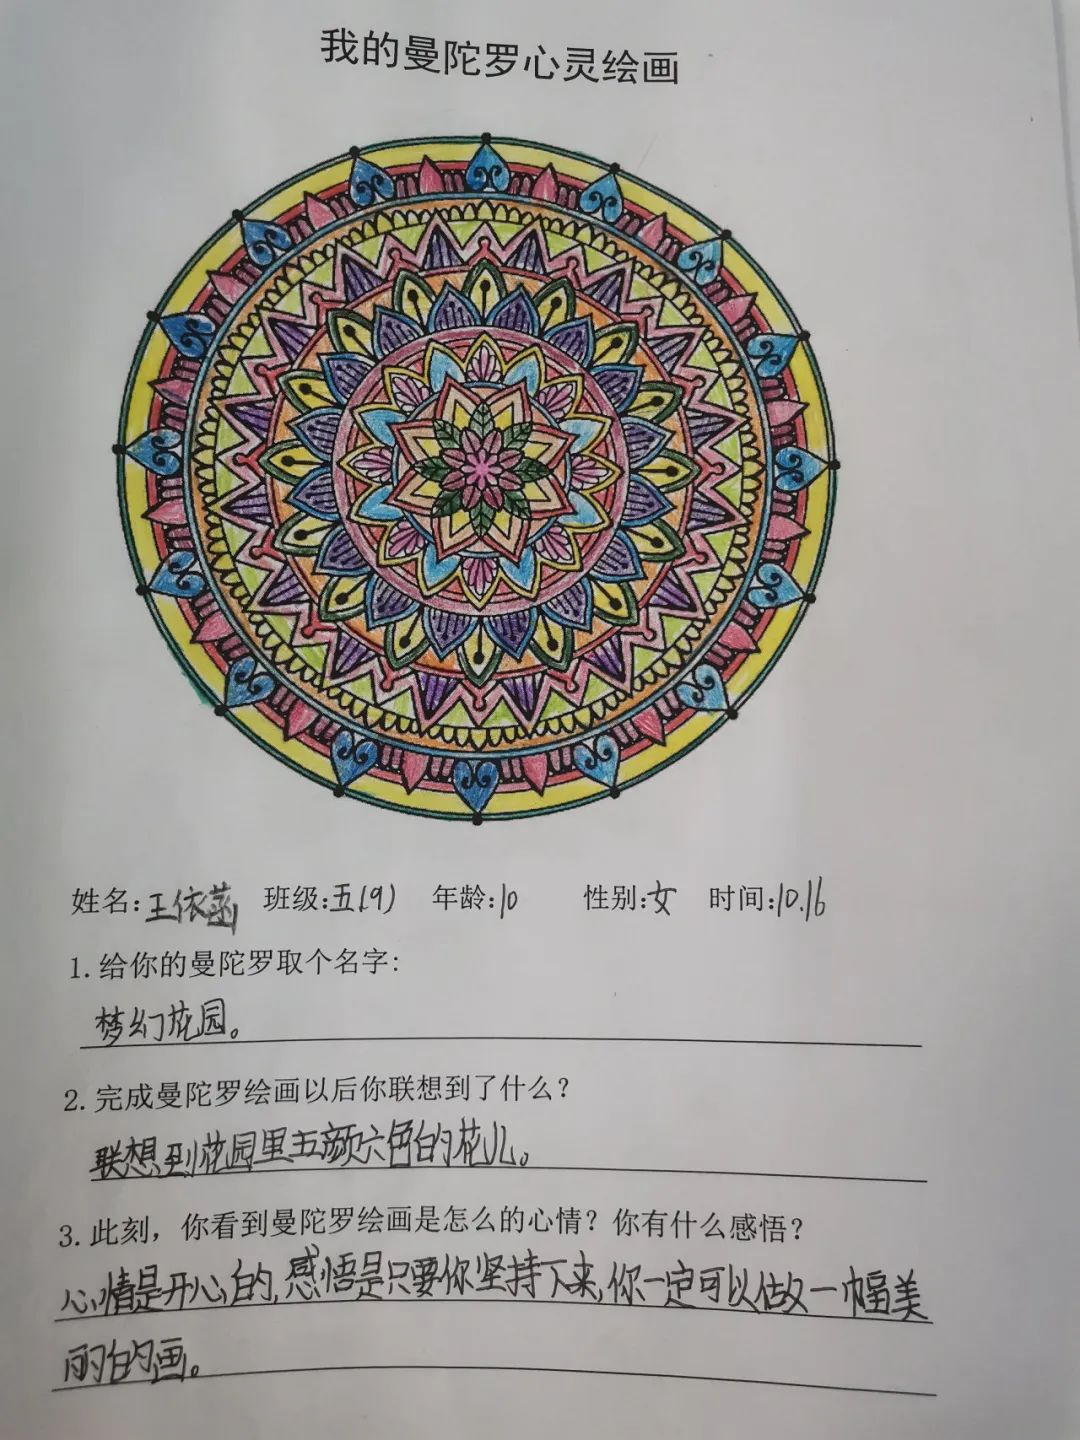 我的曼陀罗心灵绘画
姓名:王依菡 班级:五(9) 年龄:10 性别:女 时间:10.16
1.给你的曼陀罗取个名字:
梦幻花园。
2.完成曼陀罗绘画以后你联想到了什么?
联想到花园里五颜六色的花儿。
3.此刻，你看到曼陀罗绘画是怎么的心情？你有什么感悟？
心情是开心的,感悟是只要你坚持下来,你一定可以做一幅美
丽的画。